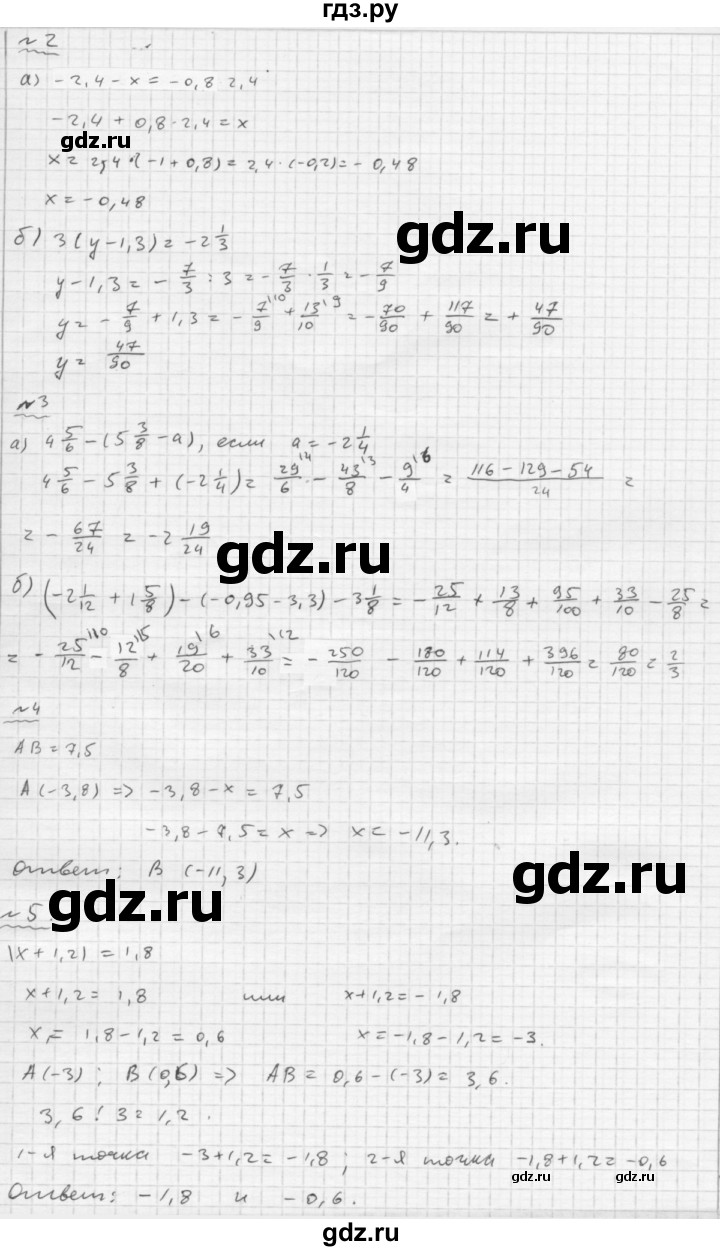 гдз.ру
№2
а) -2,4 - x = -0,8 2,4
-2,4 + 0,8 · 2,4 = x
gdz.ru
x = 2,4 · (-1 + 0,8) = 2,4 · (-0,2) = -0,48
x = -0,48
gdz.ru
б) 3(y - 1,3) = -2 1/3
y - 1,3 = - 7/3 : 3 = - 7/3 · 1/3 = - 7/9
gdz.ru
y = - 7/9 + 1,3 = - 7/9 \10 + 13/10 \9 = - 70/90 + 117/90 = + 47/90
y = 47/90
№3
а) 4 5/6 - (5 3/8 - a), если a = -2 1/4
4 5/6 - 5 3/8 + (-2 1/4) = 29/6 \4 - 43/8 \3 - 9/4 \6 = (116 - 129 - 54)/24 =
= - 67/24 = -2 19/24
gdz.ru
б) (-2 1/12 + 1 5/8) - (-0,95 - 3,3) - 3 1/8 = - 25/12 + 13/8 + 95/100 + 33/10 - 25/8 =
= - 25/12 \10 - 12/8 \15 + 19/20 \6 + 33/10 \12 = - 250/120 - 180/120 + 114/120 + 396/120 = 80/120 = 2/3
gdz.ru
№4
AB = 7,5
A(-3,8) => -3,8 - x = 7,5
gdz.ru
-3,8 - 7,5 = x => x = -11,3.
Ответ: B (-11,3)
gdz.ru
№5
gdz.ru
|x + 1,2| = 1,8
x + 1,2 = 1,8 или x + 1,2 = - 1,8
x = 1,8 - 1,2 = 0,6 x = -1,8 - 1,2 = -3.
A(-3); B(0,6) => AB = 0,6 - (-3) = 3,6.
gdz.ru
3,6 : 3 = 1,2.
1-я точка -3 + 1,2 = -1,8; 2-я точка -1,8 + 1,2 = -0,6
gdz.ru
gdz.ru
Ответ: -1,8 и -0,6.
gdz.ru